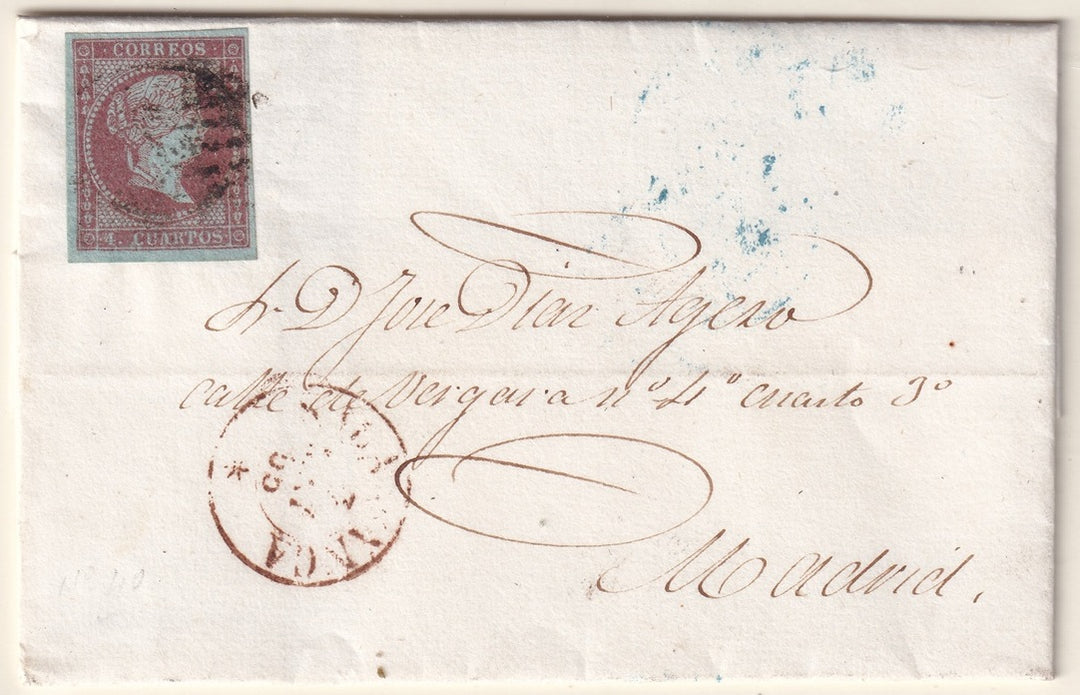 CORREOS
4. CUARTOS
Sr. D Jose Diaz Agero
calle de Vergara nº 4º cuarto 3º
Madrid.
Nº 40